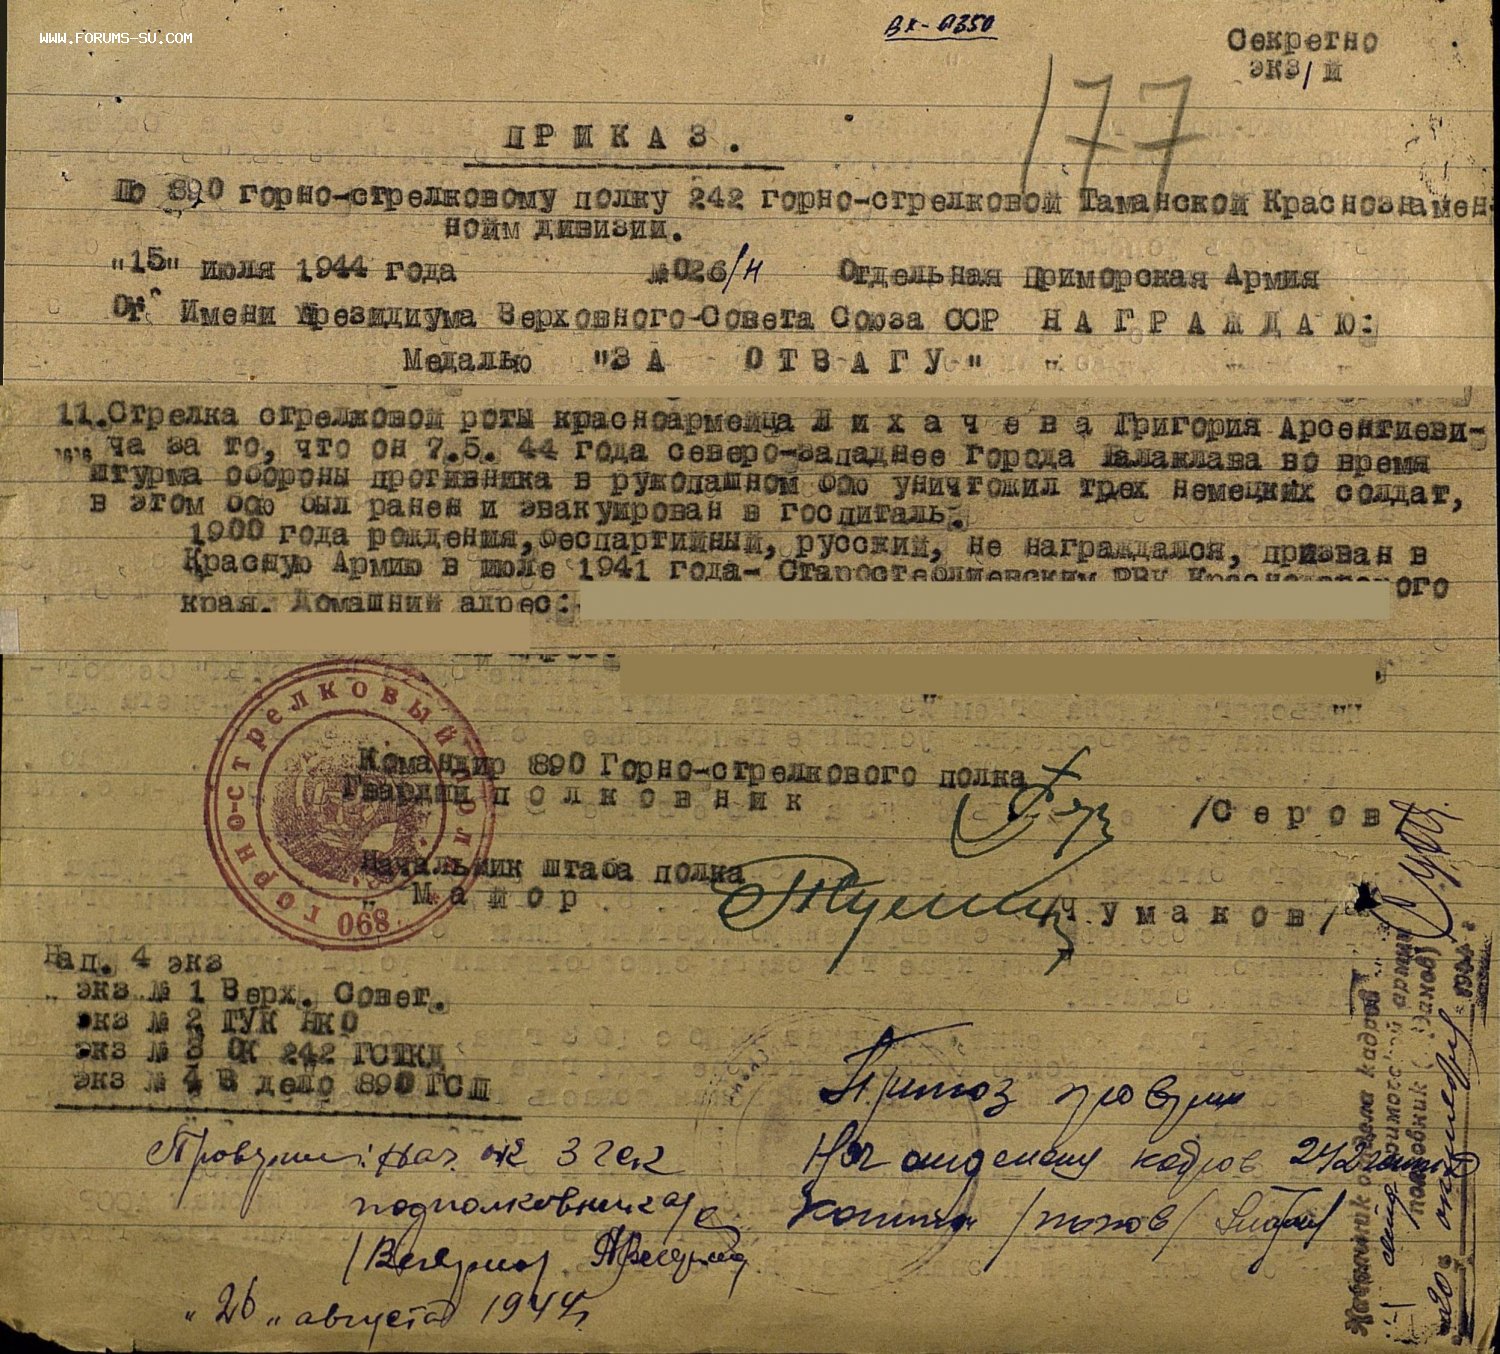 WWW.FORUMS-SU.COM
Вх-0350
Секретно
экз/ №
177
ПРИКАЗ.
По 890 горно-стрелковому полку 242 горно-стрелковой Таманской Краснознамен-
нойм дивизии.
"15" июля 1944 года №026/н Отдельная Приморская Армия
От Имени Президиума Верховного-Совета Союза ССР НАГРАЖДАЮ:
Медалью "ЗА ОТВАГУ"
11.Стрелка стрелковой роты красноармейца Лихачева Григория Арсентиеви-
ча за то, что он 7.5. 44 года северо-западнее города Балаклава во время
штурма обороны противника в рукопашном бою уничтожил трех немецких солдат,
в этом бою был ранен и эвакуирован в госпиталь.
1900 года рождения, беспартийный, русский, не награждался, призван в
Красную Армию в июле 1941 года- Старостеблиевским РВК Краснодарского
края. Домашний адрес:
ГОРНО-СТРЕЛКОВЫЙ ПОЛК
890
Командир 890 Горно-стрелкового полка
Гвардии полковник /Серов
Начальник штаба полка
Майор /Чумаков/
Нап. 4 экз
экз № 1 Верх. Совет.
экз № 2 ГУК НКО
экз № 3 ОК 242 ГСТКД
экз № 4 В дело 890 ГСП
Проверил: Нач. ОК 3 гск
подполковник а/с
"26" августа 1944г
Приказ проверил
Нач отделения кадров 242
Капитан /Попов/
Начальник отдела кадров
Приморской армии
полковник
"20" 1944 г